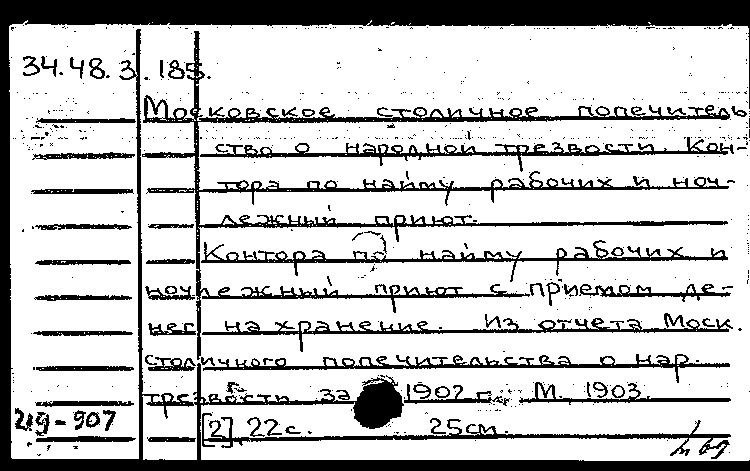 34.48.3.185.
Московское столичное попечитель
ство о народной трезвости. Кон-
тора по найму рабочих и ноч-
лежный приют.
Контора по найму рабочих и
ночлежный приют с приемом де-
нег на хранение. Из отчета Моск.
столичного попечительства о нар.
трезвости за 1902 г. М. 1903.
219-907
[2], 22с. 25см.